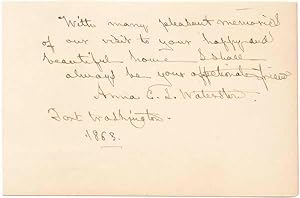 "With many pleasant memories
of our visit to your happy and
beautiful home I shall
always be your affectionate friend
Anna C. L. Waterston.
Fort Washington.
1863.